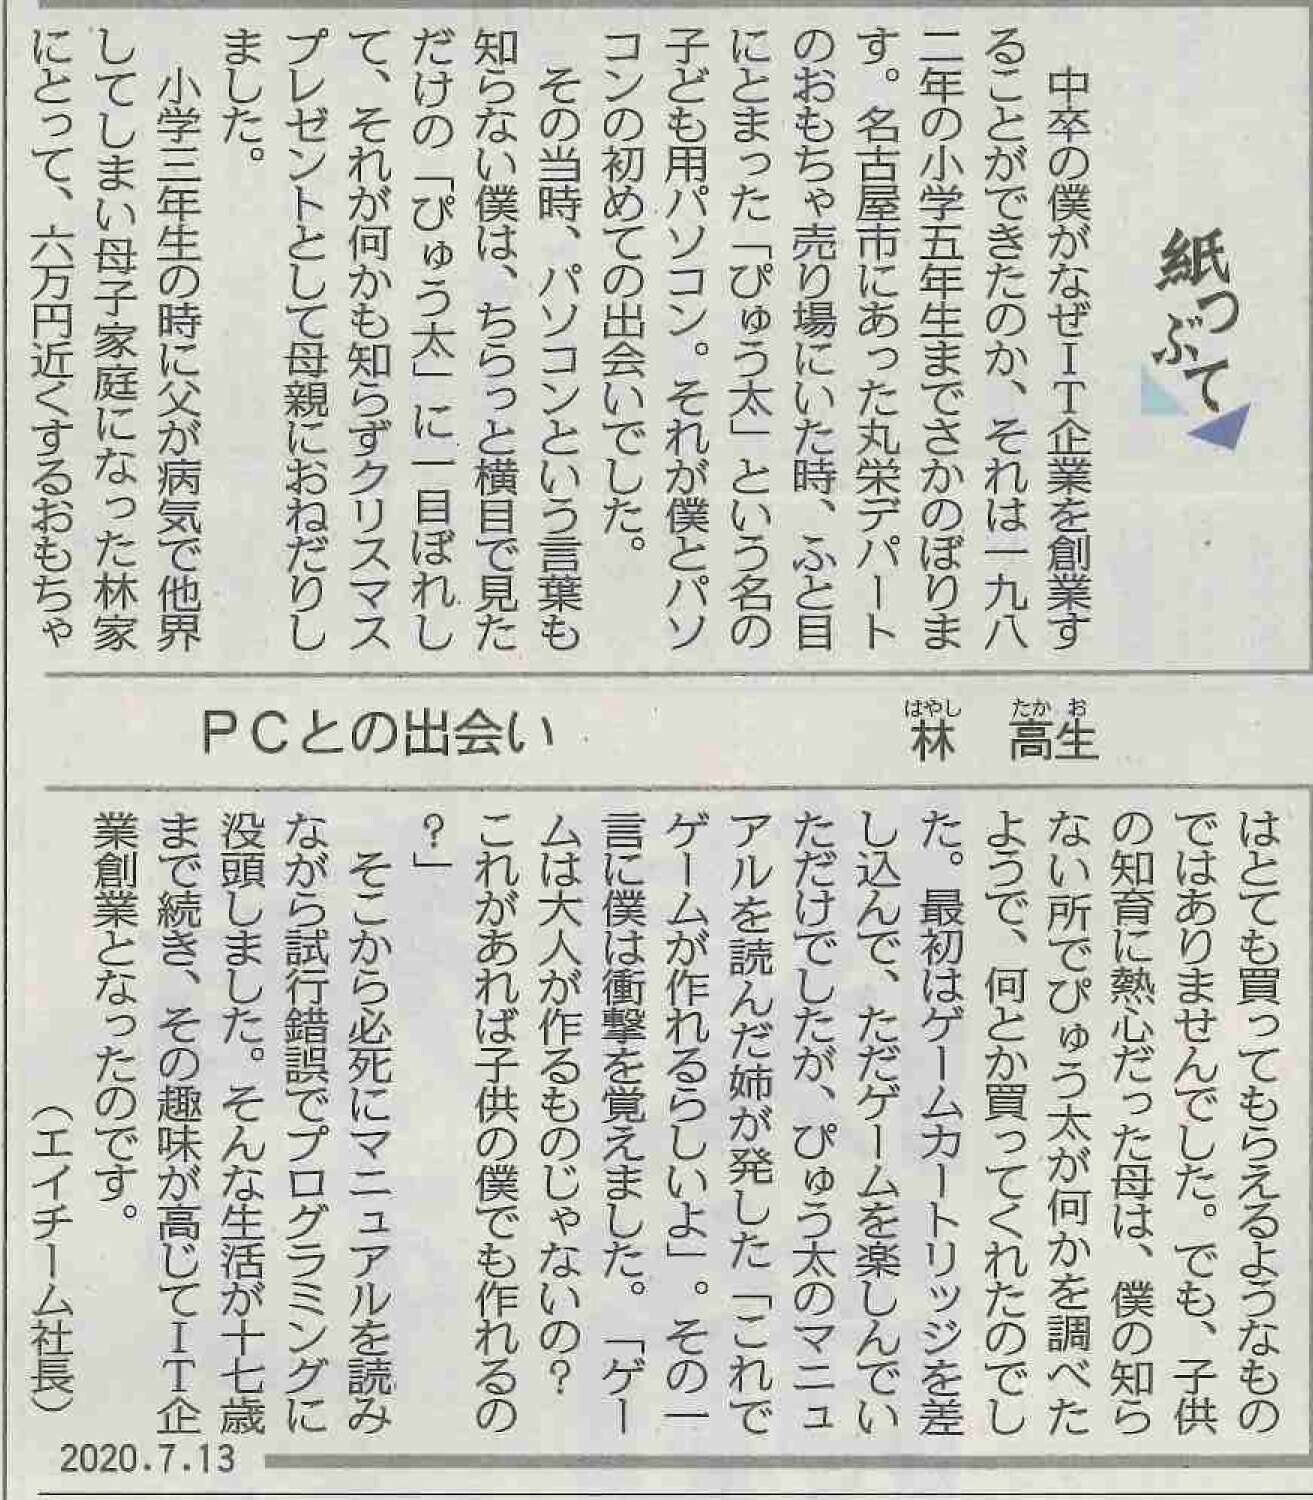 紙つぶて
中卒の僕がなぜＩＴ企業を創業す
ることができたのか、それは一九八
二年の小学五年生までさかのぼりま
す。名古屋市にあった丸栄デパート
のおもちゃ売り場にいた時、ふと目
にとまった「ぴゅう太」という名の
子ども用パソコン。それが僕とパソ
コンの初めての出会いでした。
その当時、パソコンという言葉も
知らない僕は、ちらっと横目で見た
だけの「ぴゅう太」に一目ぼれし
て、それが何かも知らずクリスマス
プレゼントとして母親におねだりし
ました。
小学三年生の時に父が病気で他界
してしまい母子家庭になった林家
にとって、六万円近くするおもちゃ
ＰＣとの出会い
はやし たか お
林 高生
はとても買ってもらえるようなもの
ではありませんでした。でも、子供
の知育に熱心だった母は、僕の知ら
ない所でぴゅう太が何かを調べた
ようで、何とか買ってくれたのでし
た。最初はゲームカートリッジを差
し込んで、ただゲームを楽しんでい
ただけでしたが、ぴゅう太のマニュ
アルを読んだ姉が発した「これで
ゲームが作れるらしいよ」。その一
言に僕は衝撃を覚えました。「ゲー
ムは大人が作るものじゃないの？
これがあれば子供の僕でも作れるの
？」
そこから必死にマニュアルを読み
ながら試行錯誤でプログラミングに
没頭しました。そんな生活が十七歳
まで続き、その趣味が高じてＩＴ企
業創業となったのです。
（エイチーム社長）
2020.7.13